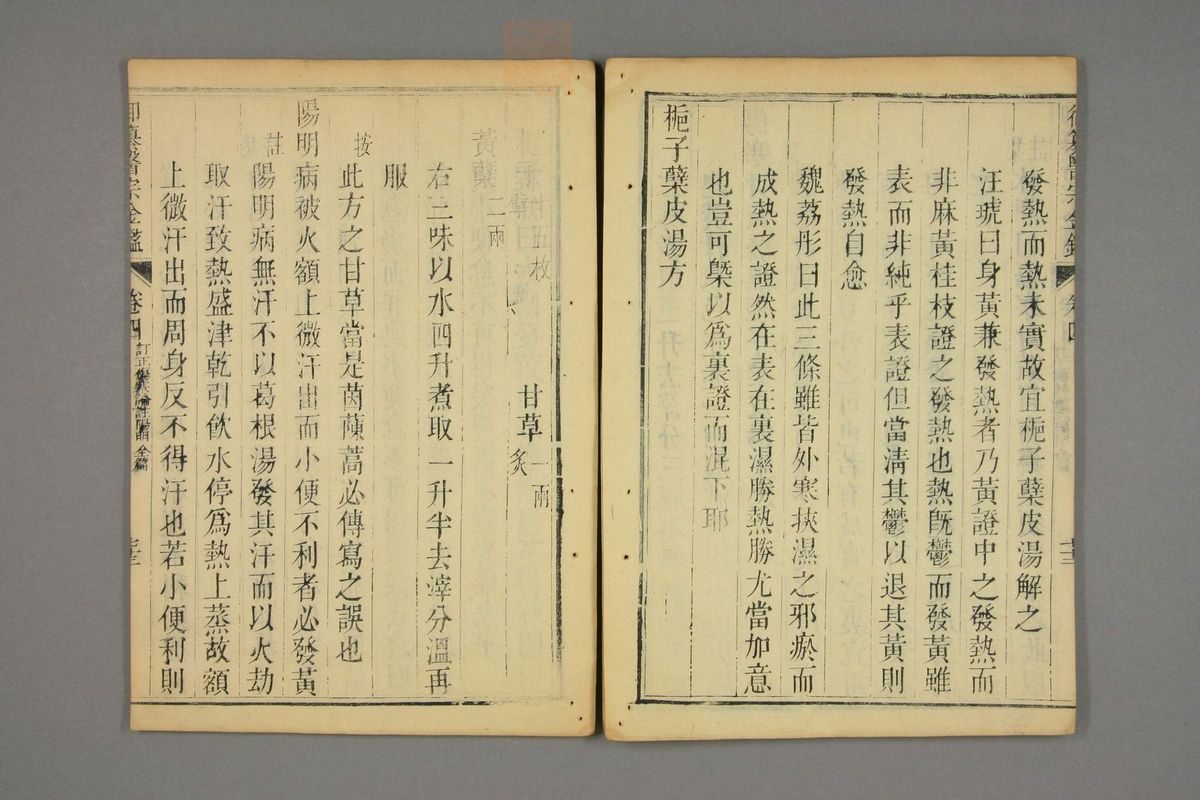 御纂醫宗金鑑 卷四
發熱而熱未實故宜梔子蘗皮湯解之
汪琥曰身黃兼發熱者乃黃證中之發熱而
非麻黃桂枝證之發熱也熱旣鬱而發黃雖
表而非純乎表證但當淸其鬱以退其黃則
發熱自愈
魏荔彤曰此三條雖皆外寒挾濕之邪瘀而
成熱之證然在表在裏濕勝熱勝尤當加意
也豈可槩以爲裏證而混下耶
梔子蘗皮湯方
枚 甘草一兩炙
黃蘗二兩
右三味以水四升煮取一升半去滓分溫再
服
按此方之甘草當是茵蔯蒿必傳寫之誤也
陽明病被火額上微汗出而小便不利者必發黃
註陽明病無汗不以葛根湯發其汗而以火劫
取汗致熱盛津乾引飮水停爲熱上蒸故額
上微汗出而周身反不得汗也若小便利則
御纂醫宗金鑑 卷四 訂正傷寒論註陽明全篇